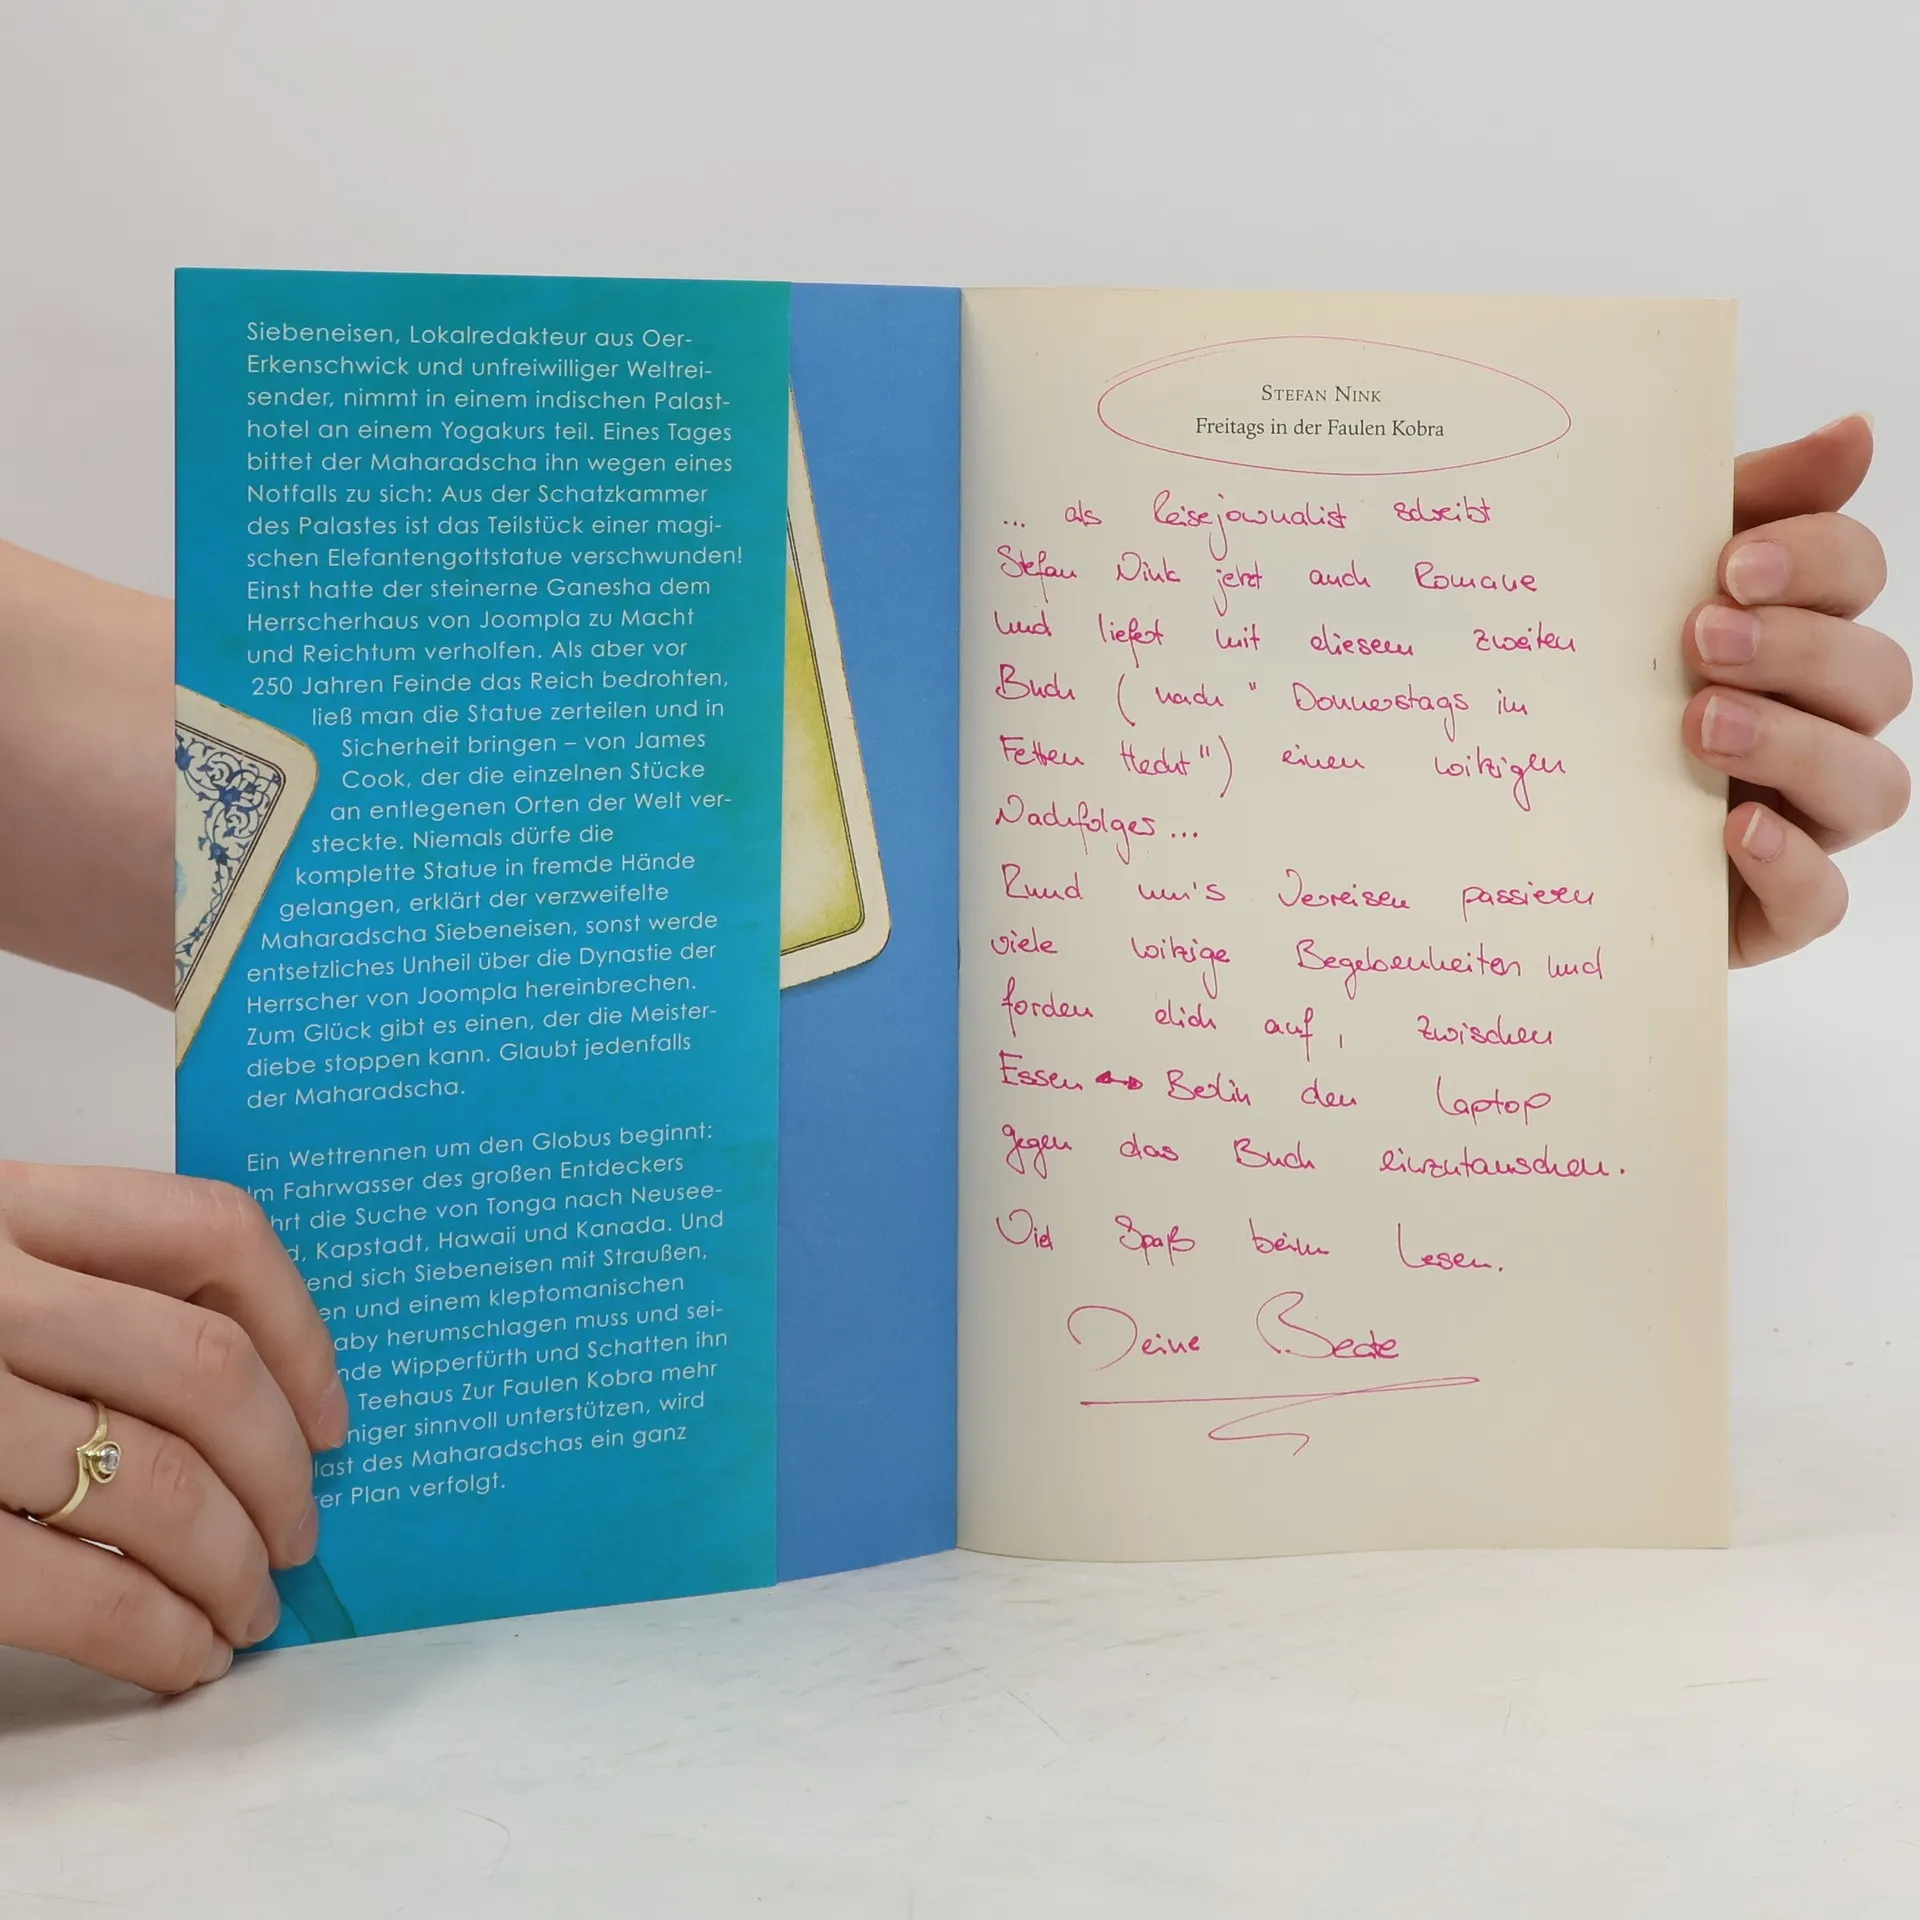 Siebeneisen, Lokalredakteur aus Oer-
Erkenschwick und unfreiwilliger Weltrei-
sender, nimmt in einem indischen Palast-
hotel an einem Yogakurs teil. Eines Tages
bittet der Maharadscha ihn wegen eines
Notfalls zu sich: Aus der Schatzkammer
des Palastes ist das Teilstück einer magi-
schen Elefantengottstatue verschwunden!
Einst hatte der steinerne Ganesha dem
Herrscherhaus von Joompla zu Macht
und Reichtum verholfen. Als aber vor
250 Jahren Feinde das Reich bedrohten,
ließ man die Statue zerteilen und in
Sicherheit bringen – von James
Cook, der die einzelnen Stücke
an entlegenen Orten der Welt ver-
steckte. Niemals dürfe die
komplette Statue in fremde Hände
gelangen, erklärt der verzweifelte
Maharadscha Siebeneisen, sonst werde
entsetzliches Unheil über die Dynastie der
Herrscher von Joompla hereinbrechen.
Zum Glück gibt es einen, der die Meister-
diebe stoppen kann. Glaubt jedenfalls
der Maharadscha.
Ein Wettrennen um den Globus beginnt:
Im Fahrwasser des großen Entdeckers
hrt die Suche von Tonga nach Neusee-
d, Kapstadt, Hawaii und Kanada. Und
end sich Siebeneisen mit Straußen,
en und einem kleptomanischen
aby herumschlagen muss und sei-
nde Wipperfürth und Schatten ihn
Teehaus Zur Faulen Kobra mehr
niger sinnvoll unterstützen, wird
last des Maharadschas ein ganz
rer Plan verfolgt.
STEFAN NINK
Freitags in der Faulen Kobra
... als Reisejournalist schreibt
Stefan Nink jetzt auch Romane
und liefert mit diesem zweiten
Buch (nach "Donnerstags im
Fetten Hecht") einen witzigen
Nachfolger...
Rund um's Verreisen passieren
viele witzige Begebenheiten und
fordern dich auf, zwischen
Essen ↔ Berlin den Laptop
gegen das Buch einzutauschen.
Viel Spaß beim Lesen.
Deine Beate